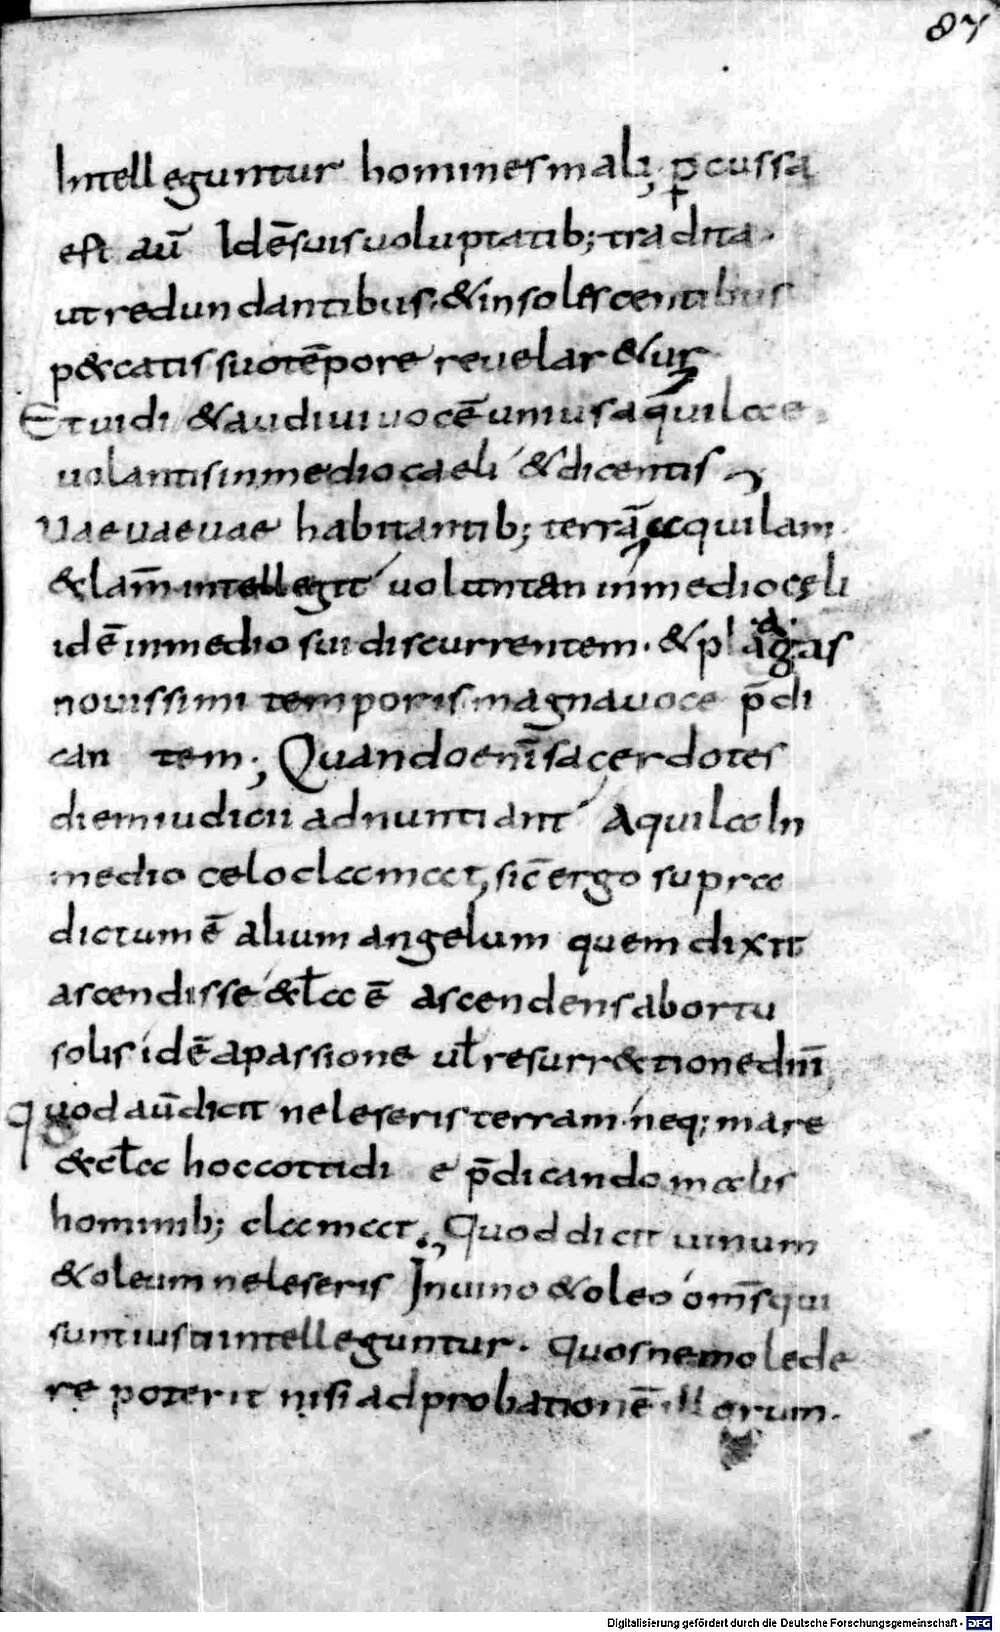 87
Intelleguntur homines mali; p̄cussa
est aū Idē suis uoluptatib; tradita.
ut redundantibus. & insolescentibus
p&catis suo tēpore reuelar&ur
Et uidi & audiui uocē unius aquilae
uolantis in medio caeli & dicentis
uae uae uae habitantib; terrā aquilam
&lam̄ intellegit uolantan in medio cęli
idē in medio sui discurrentem. & plagas
nouissimi temporis magna uoce p̄di
can tem; Quando enī sacerdotes
diem iudicii adnuntiant Aquila In
medio celo clamat, sic̄ ergo supra
dictum ē alium angelum quem dixit
ascendisse &ł̄a ē ascendens ab ortu
solis idē a passione uł resurr&tione dn̄i
quod aū dicit ne leseris terram neq; mare
&cł̄a hoc cottidi e p̄dicando malis
hominib; clamat. Quod dicit uinum
& oleum ne leseris In uino & oleo om̄s qui
sunt iusti intelleguntur. quos nemo lede
re poterit nisi ad probationē illorum.
Digitalisierung gefördert durch die Deutsche Forschungsgemeinschaft - DFG